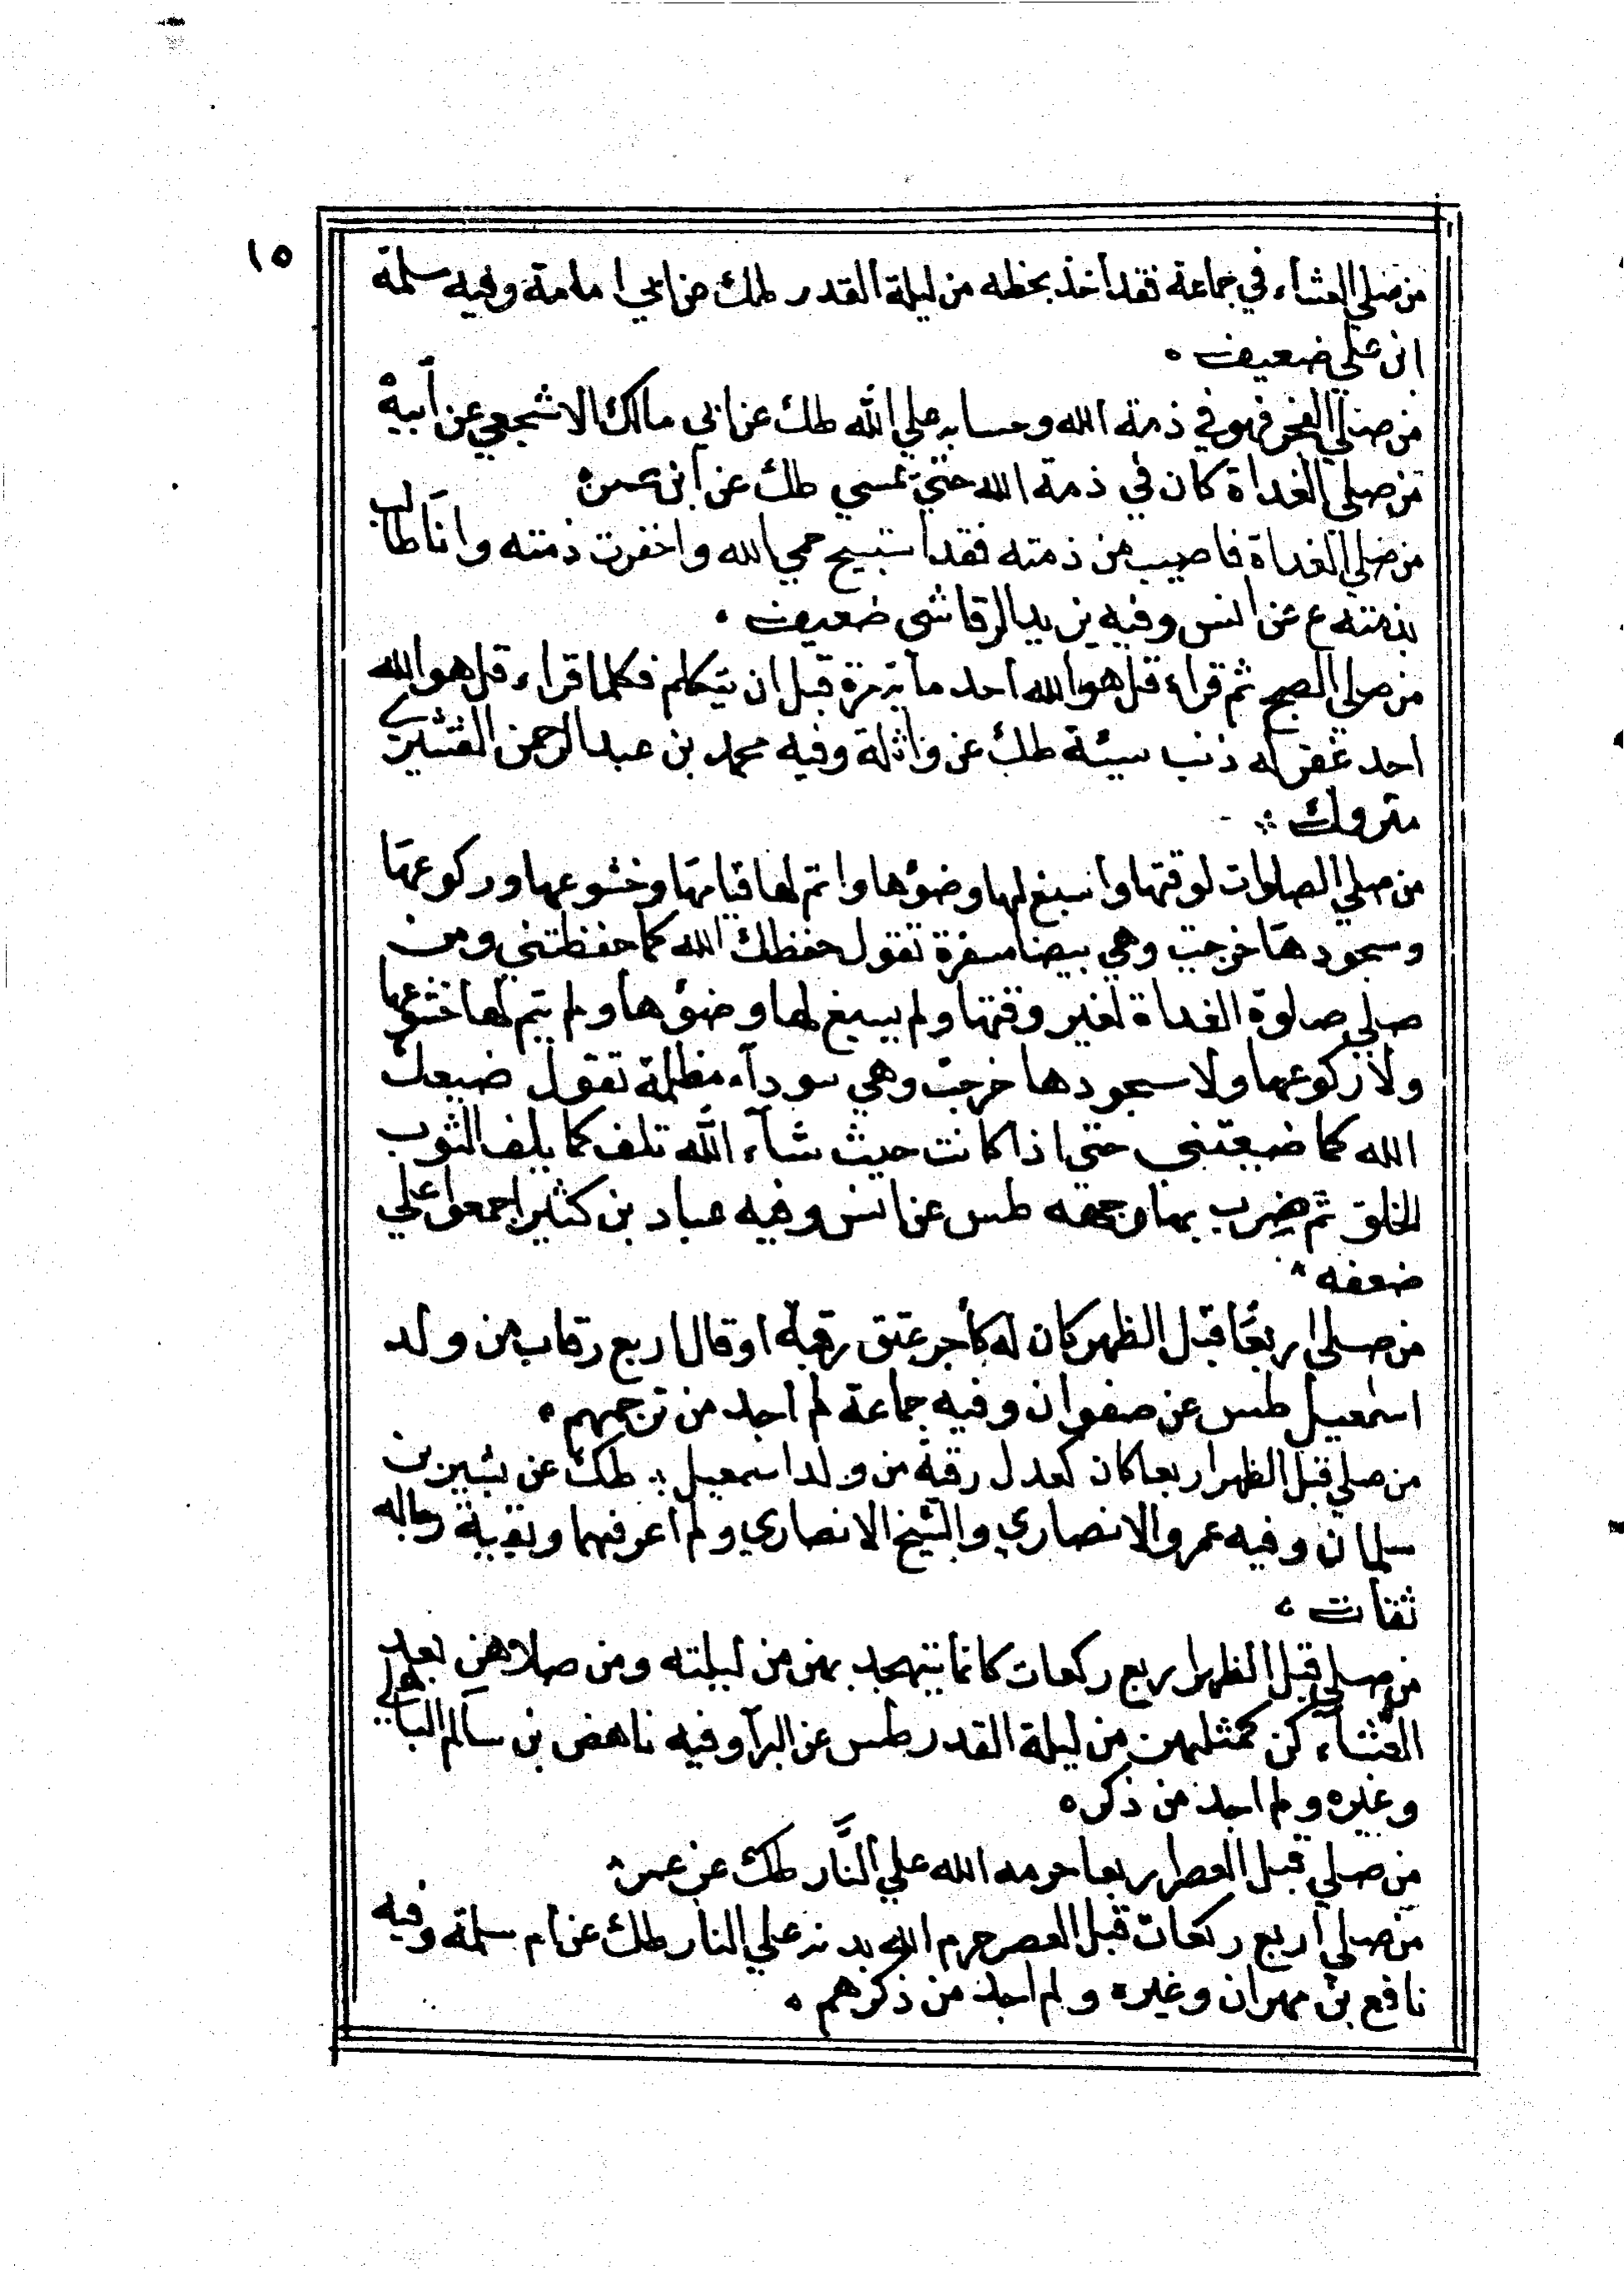 ١٥
من صلي العشاء في جماعة فقد اخذ بحظه من ليلة القدر طك عن ابي امامة وفيه سلمة
ابن علي ضعيف ه
من صلي الفجر فهو في ذمة الله وحسابه علي الله طك عن ابي مالك الاشجعي عن ابيه
من صلي الغداة كان في ذمة الله حتي يمسي طك عن ابن عمر ه
من صلي الغداة فاصيب من ذمته فقد استبيح حمي الله واخفرت ذمته وانا طالب
بذمته ع عن انس وفيه يزيد الرقاشي ضعيف ه
من صلي الصبح ثم قراء قل هو الله احد مائة مرة قبل ان يتكلم فكلما قراء قل هو الله
احد غفر له ذنب سيئة طك عن واثلة وفيه محمد بن عبد الرحمن القشيري
متروك
من صلي الصلوات لوقتها واسبغ لها وضوءها واتم لها قيامها وخشوعها وركوعها
وسجودها خرجت وهي بيضا مسفرة تقول حفظك الله كما حفظتني ومن
صلي صلوة الغداة لغير وقتها ولم يسبغ لها وضوءها ولم يتم لها خشوعها
ولا ركوعها ولا سجودها خرجت وهي سودآء مظلمة تقول ضيعك
الله كما ضيعتني حتي اذا كانت حيث شآء الله تلف كما يلف الثوب
الخلق ثم ضرب بها وجهه طس عن انس وفيه عباد بن كثير اجمعوا علي
ضعفه
من صلي اربعًا قبل الظهر كان له كأجر عتق رقبة او قال اربع رقاب من ولد
اسمعيل طس عن صفوان وفيه جماعة لم اجد من ترجمهم ه
من صلي قبل الظهر اربعا كان كعدل رقبة من ولد اسمعيل طك عن بشير بن
سلمان وفيه عمرو الانصاري والشيخ الانصاري ولم اعرفهما وبقية رجاله
ثقات ه
من صلي قبل الظهر اربع ركعات كانما يتهجد بهن من ليلته ومن صلاهن بعد
العشاء كن كمثلهن من ليلة القدر طس عن البرآ وفيه ناهض بن سالم الباهلي
وغيره ولم اجد من ذكره
من صلي قبل العصر اربعا حرمه الله علي النَّار طك عن عمر ه
من صلي اربع ركعات قبل العصر حرم الله بدنه علي النار طك عن ام سلمة وفيه
نافع بن مهران وغيره ولم اجد من ذكرهم ه